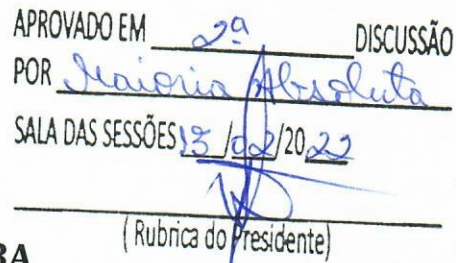 APROVADO EM 2ª DISCUSSÃO
POR Maioria Absoluta
SALA DAS SESSÕES 15/02/2022
( Rubrica do Presidente)
RA